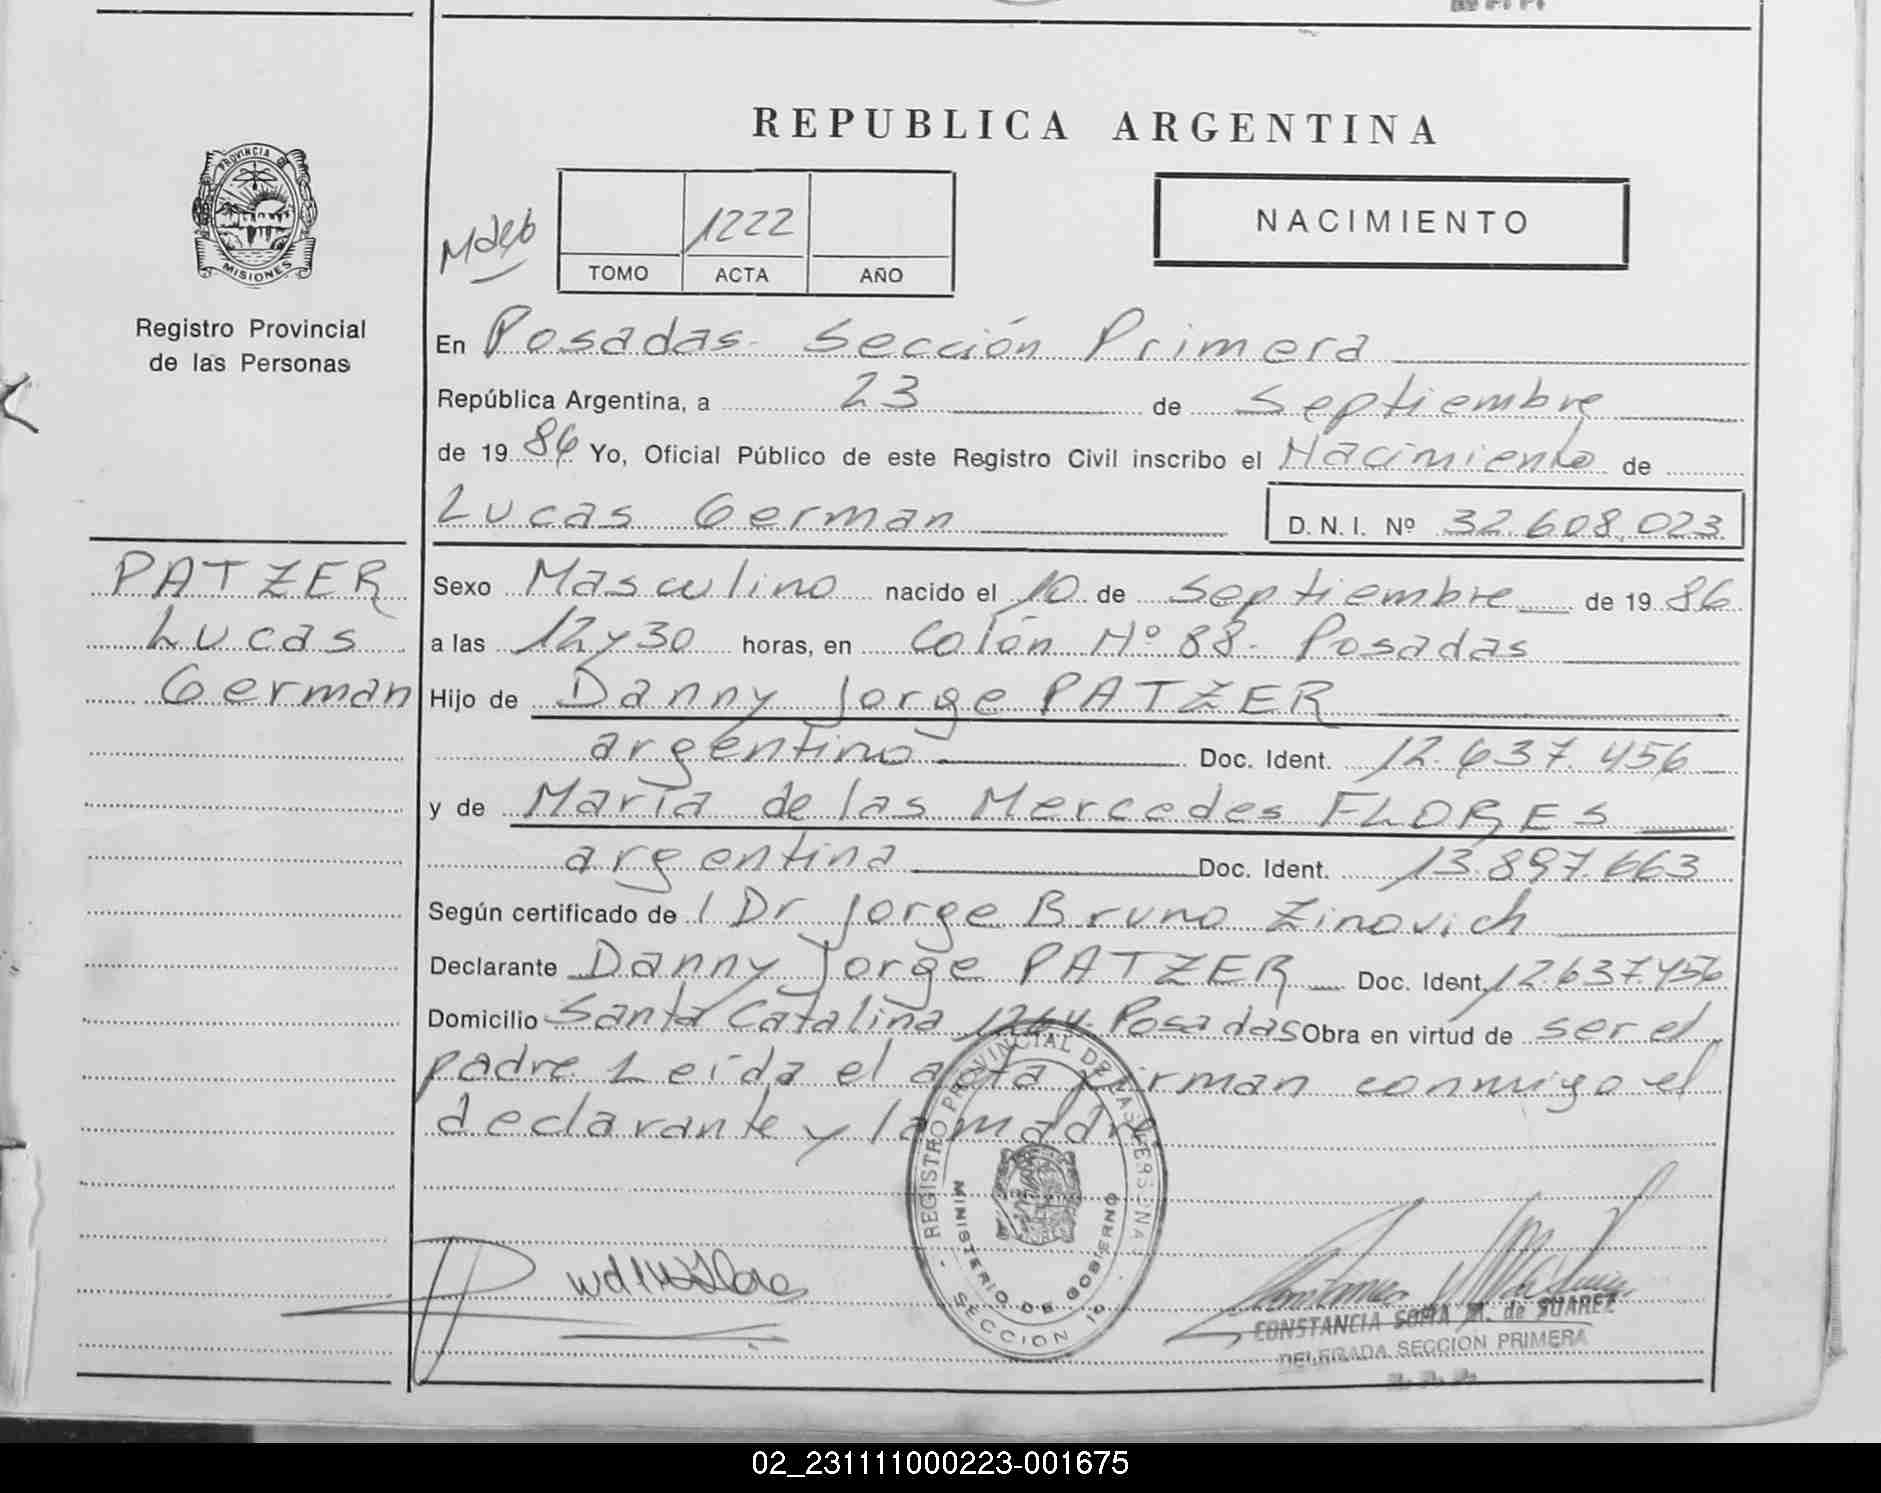 REPUBLICA ARGENTINA
PROVINCIA DE
MISIONES
Registro Provincial
de las Personas
1222
TOMO ACTA AÑO
NACIMIENTO
En Posadas- Sección Primera
República Argentina, a 23 de Septiembre
de 1986 Yo, Oficial Público de este Registro Civil inscribo el Nacimiento de
Lucas German D. N. I. Nº 32.608.023
PATZER
Lucas
German
Sexo Masculino nacido el 10 de Septiembre de 1986
a las 12 y 30 horas, en Colón Nº 88- Posadas
Hijo de Danny Jorge PATZER
argentino Doc. Ident. 12.637.456
y de María de las Mercedes FLORES
argentina Doc. Ident. 13.897.663
Según certificado de / Dr Jorge Bruno Zinovich
Declarante Danny Jorge PATZER Doc. Ident. 12.637.456
Domicilio Santa Catalina Posadas Obra en virtud de ser el
padre Leída el acta firman conmigo el
declarante y la madre
REGISTRO PROVINCIAL DE LAS PERSONAS
MINISTERIO DE GOBIERNO
SECCION 1ª
CONSTANCIA SOFIA M. de SUAREZ
DELEGADA SECCION PRIMERA
02_231111000223-001675